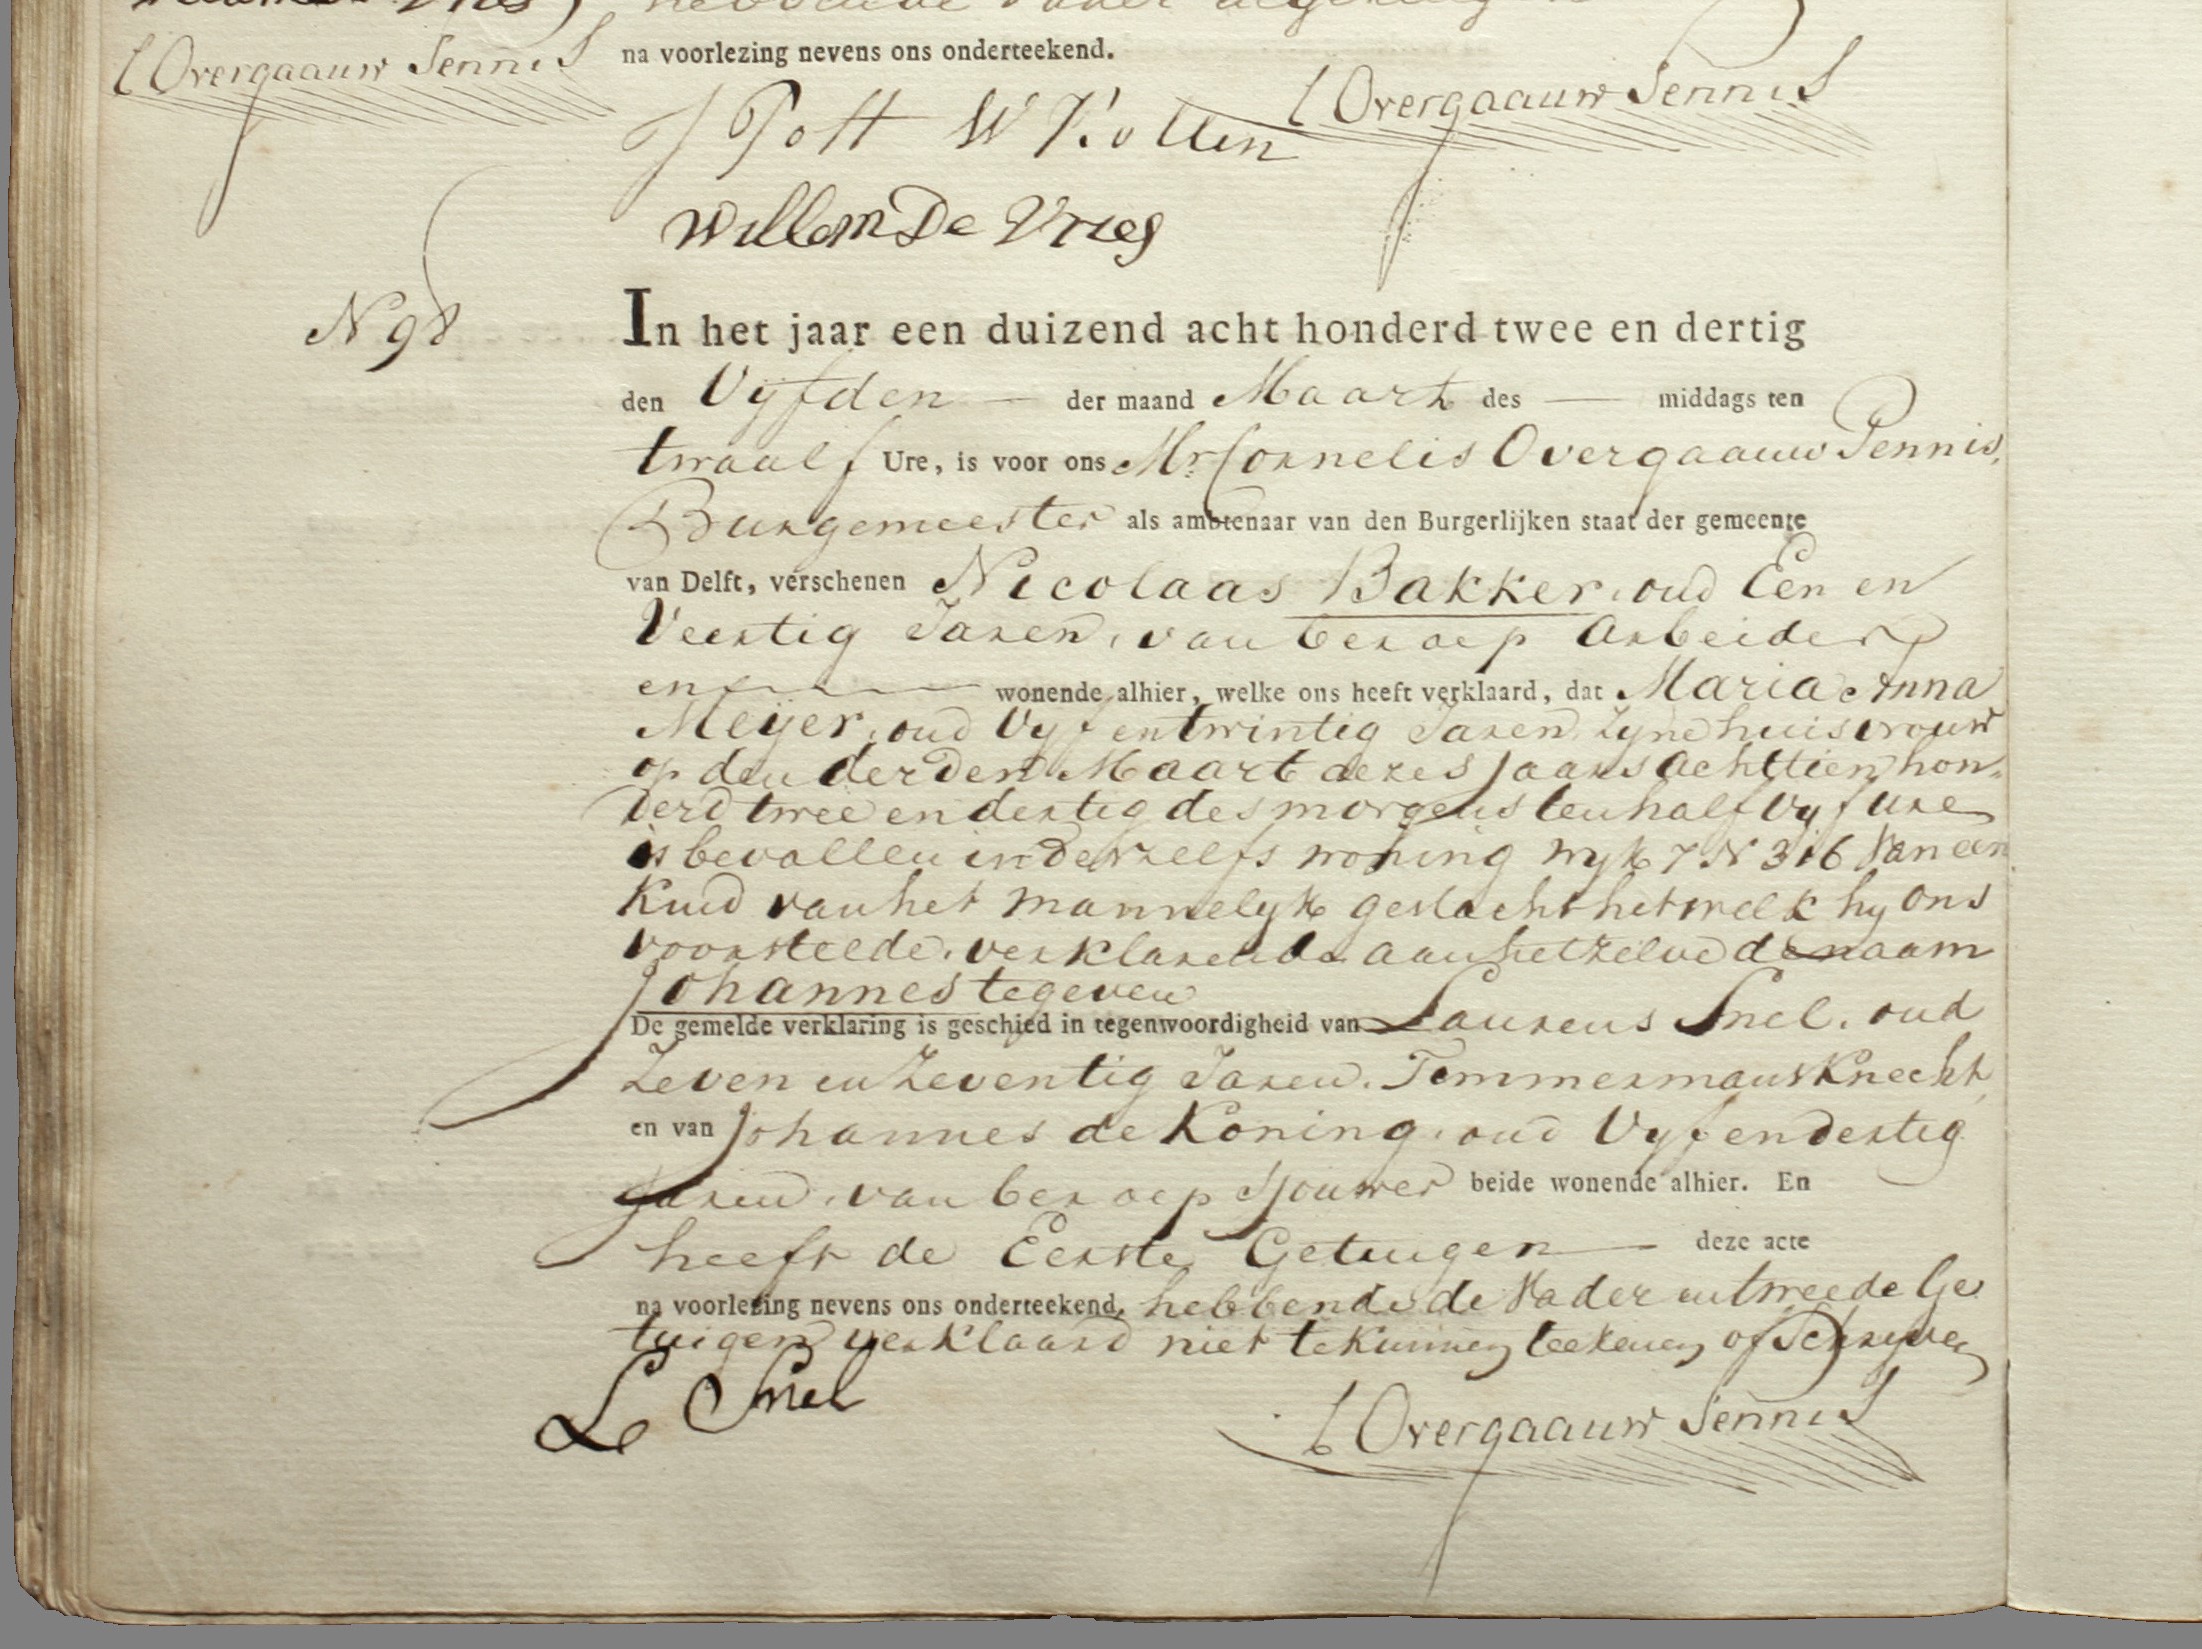 C Overgaauw Pennis
na voorlezing nevens ons onderteekend.
C Overgaauw Pennis
J Pott W Kollen
Willem De Vries
N 98
In het jaar een duizend acht honderd twee en dertig
den Vyfden der maand Maart des middags ten
twaalf Ure, is voor ons Mr Cornelis Overgaauw Pennis,
Burgemeester als ambtenaar van den Burgerlijken staat der gemeente
van Delft, verschenen Nicolaas Bakker, oud Een en
Veertig Jaren, van beroep Arbeider
en wonende alhier, welke ons heeft verklaard, dat Maria Anna
Meyer, oud Vyf en twintig Jaren zyne huisvrouw
op den derden Maart dezes Jaars achttien hon-
derd twee en dertig des morgens ten half vyf ure
is bevallen in derzelfs woning wyk 7 N 316 Van een
Kind van het mannelyk geslacht hetwelk hy ons
voorstelde, verklarende aan hetzelve de naam
Johannes te geven
De gemelde verklaring is geschied in tegenwoordigheid van Laurens Snel, oud
Zeven en Zeventig Jaren, Timmermansknecht,
en van Johannes de Koning, oud Vyf en dertig
Jaren, van beroep Sjouwer beide wonende alhier. En
heeft de Eerste Getuigen deze acte
na voorlezing nevens ons onderteekend, hebbende de Vader en tweede Ge
tuigen verklaard niet te kunnen teekenen of Schryven
L Snel
C Overgaauw Pennis